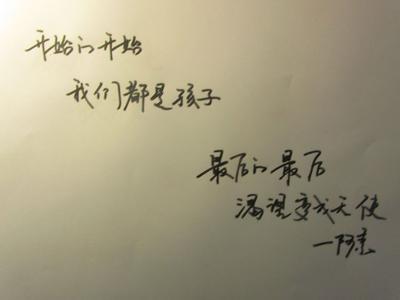 开始的开始
我们都是孩子
最后的最后
渴望变成天使